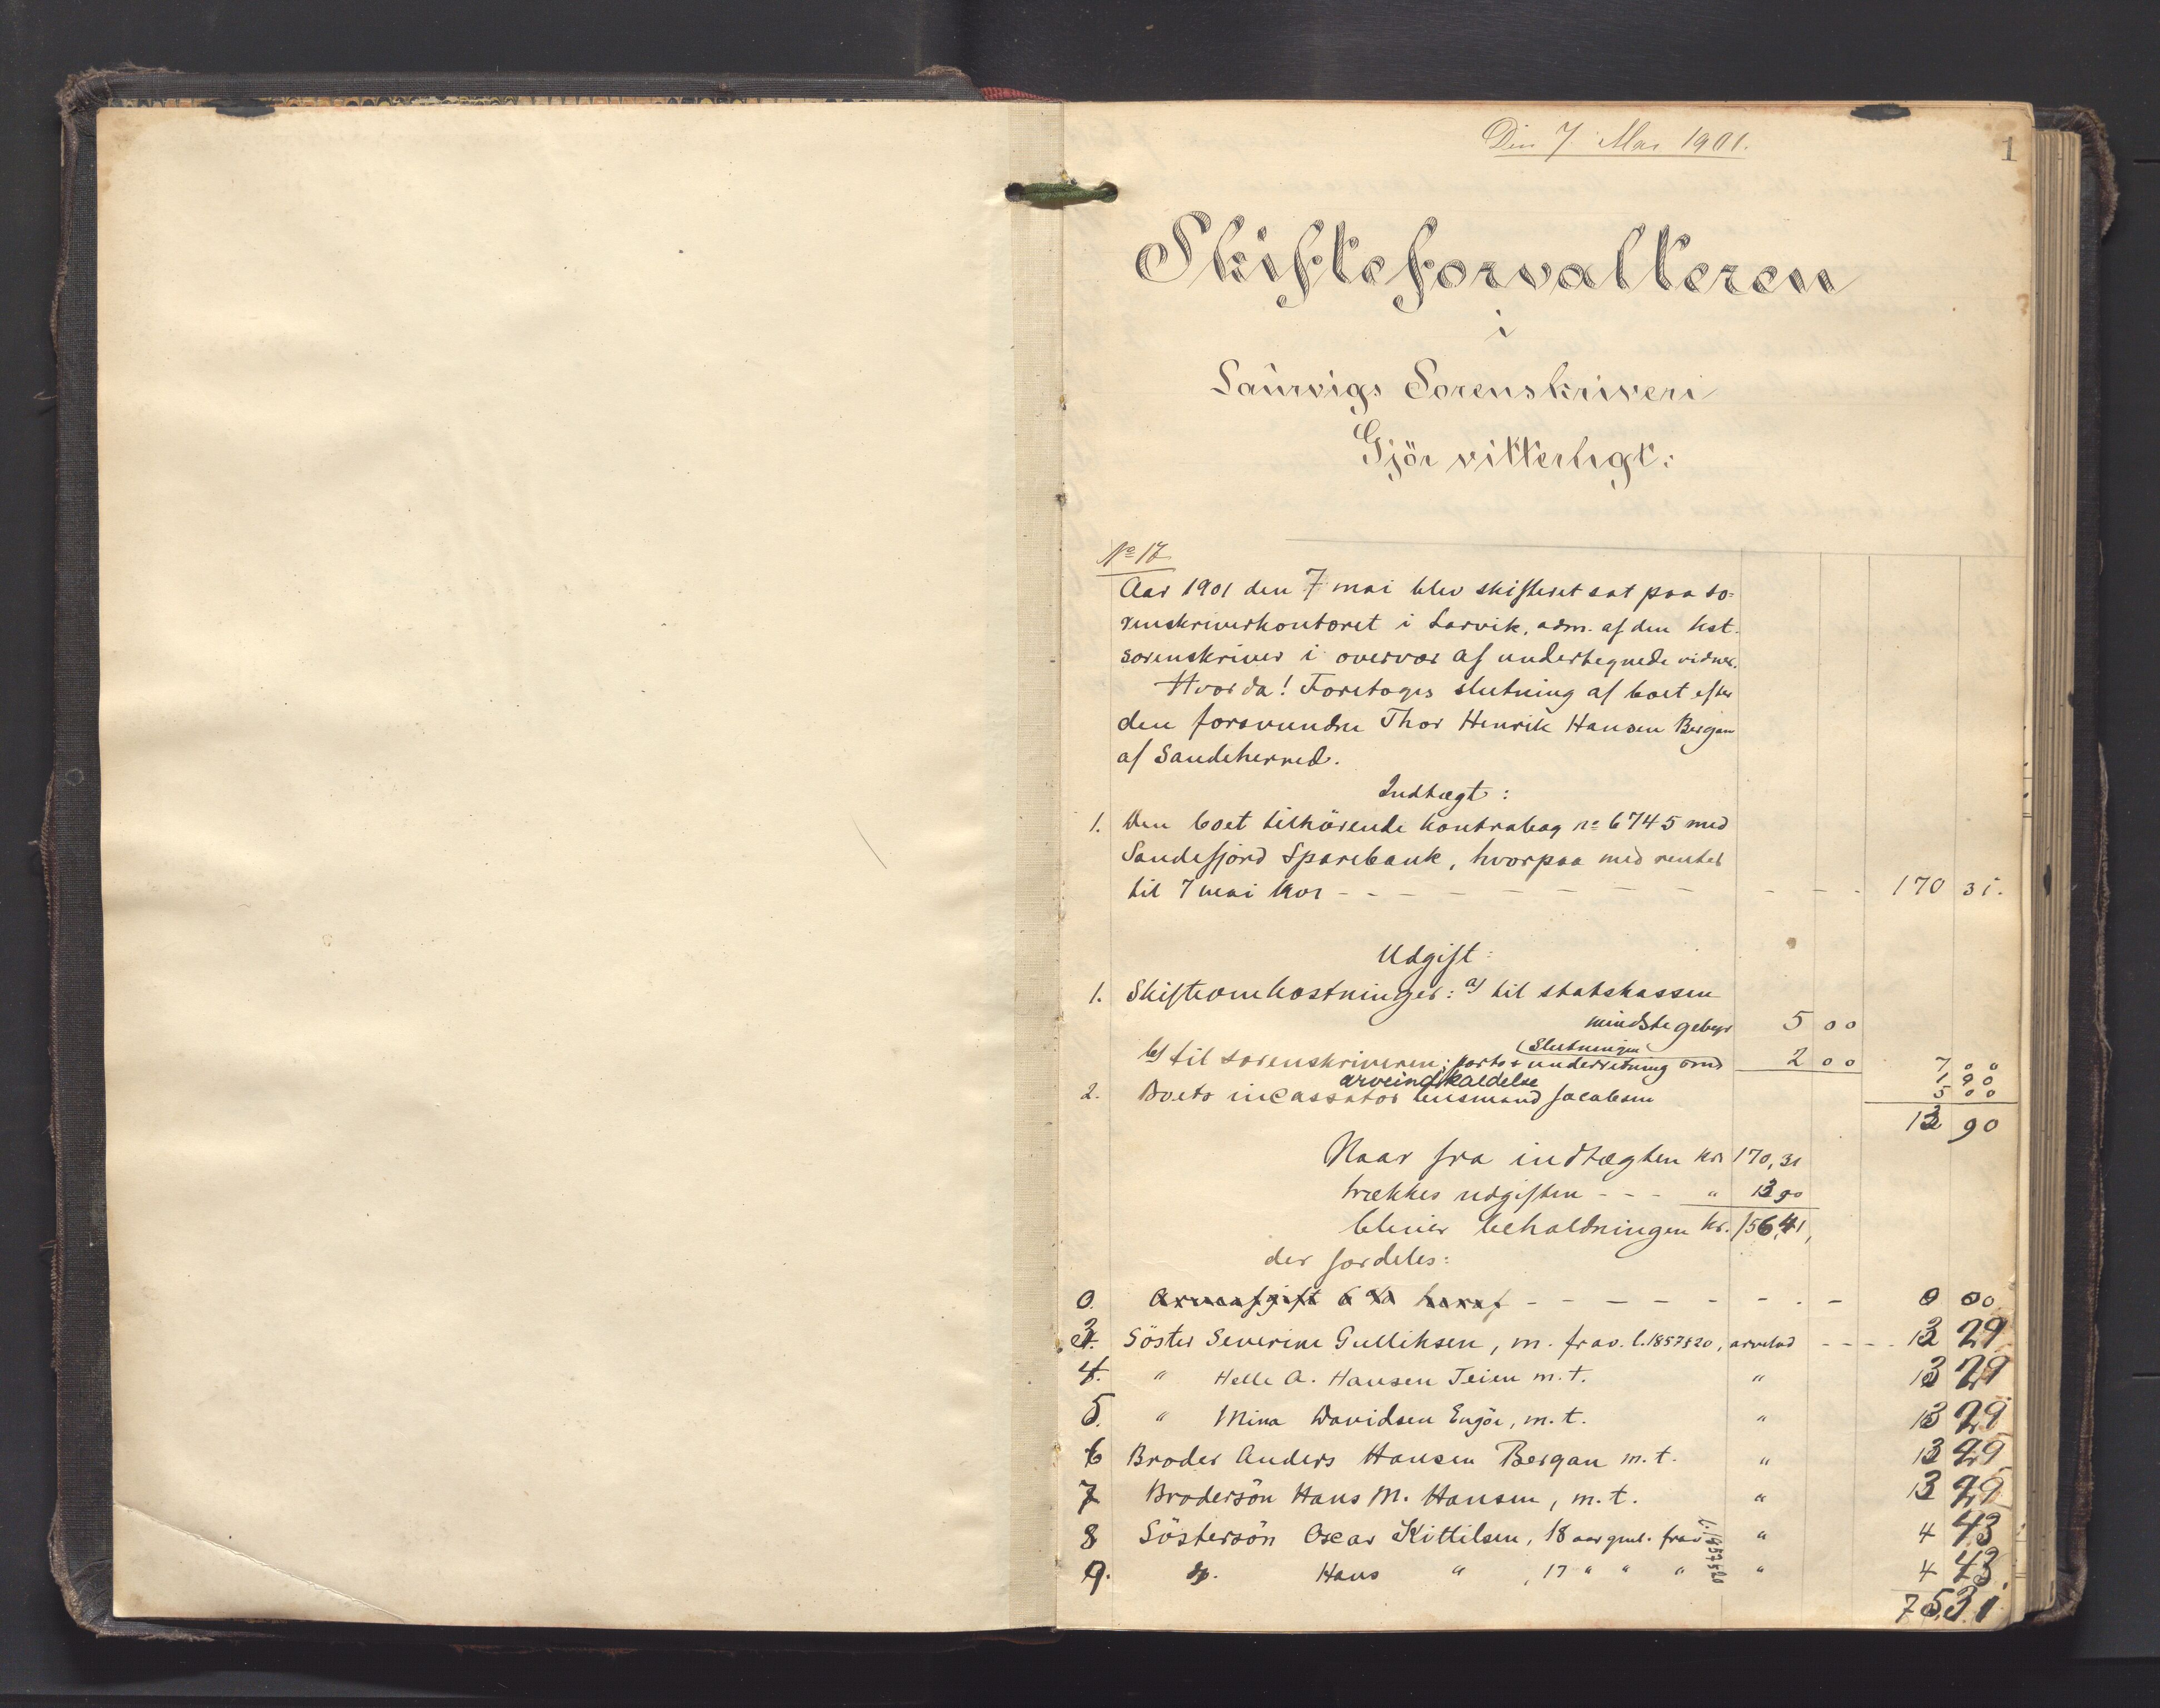 Den 7. Mai 1901.
1
Skifteforvalteren
i
Laurvigs Sorenskriveri
Gjör vitterligt:
No 17
Aar 1901 den 7 mai blev skifteret sat paa so-
renskriverkontoret i Larvik, adm. af den kst.
sorenskriver i overvær af undertegnede vidner.
Hvorda! Foretoges slutning af boet efter
den forsvundne Thor Henrik Hansen Bergan
af Sandeherred.
Indtægt:
1. Den boet tilhörende kontrabog no 6745 med
Sandefjord Sparebank, hvorpaa med renter
til 7 mai 1901 - - - - - - - - - - - 170 31.
Udgift:
1. Skifteomkostninger: a) til statskassen
mindstegebyr 5 00
slutningen
b) til sorenskriveren; porto + underretning om 2 00 7 00
arveindkaldelse 1 90
2. Boets incassator lensmand Jacobsen 5 00
13 90
Naar fra indtægten kr. 170,31
trækkes udgiften - - - " 13 90
bliver beholdningen kr. 156,41,
der fordeles:
0. Arveafgift 6 % heraf - - - - - - - - 0 00
3. Söster Severine Gulliksen, m. frav. l. 1857 § 20, arvelod - - - - 13 29
4. " Helle A. Hansen Teien m. t. " 13 29
5. " Mina Davidsen Engöe, m. t. " 13 29
6 Broder Anders Hansen Bergan m. t. " 13 29
7 Brodersön Hans M. Hansen, m. t. " 13 29
8 Söstersön Oscar Kittilsen, 18 aar gml. frav l. 1857 § 20 " 4 43
9. Hans " , 17 " " " " 4 43
75 31